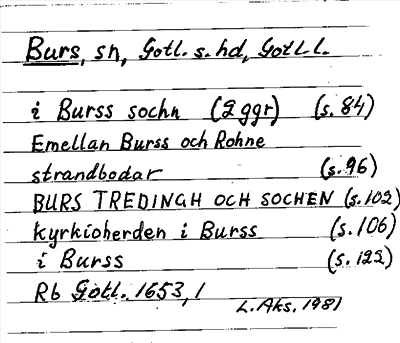 Burs, sn, Gotl. s. hd, Gotl l.
i Burss sochn (2 ggr) (s. 84)
Emellan Burss och Rohne
strandbodar (s. 96)
BURS TREDINGH OCH SOCHEN (s. 102)
kyrkioherden i Burss (s. 106)
i Burss (s. 122)
Rb Gotl. 1653, 1
L. Aks. 1981